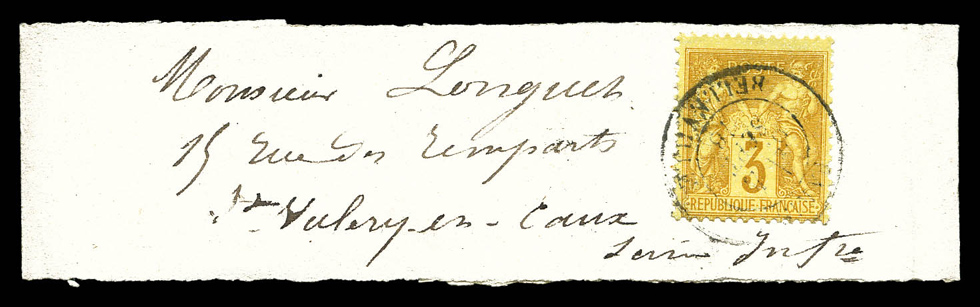 Monsieur Longuet
15 Rue des Remparts
St Valery-en-Caux
Seine Infre
POSTE
3
REPUBLIQUE FRANCAISE